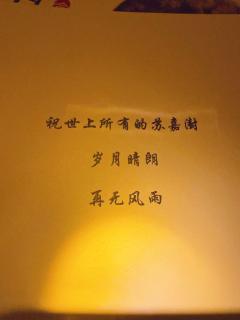 祝世上所有的苏嘉澍
岁月晴朗
再无风雨